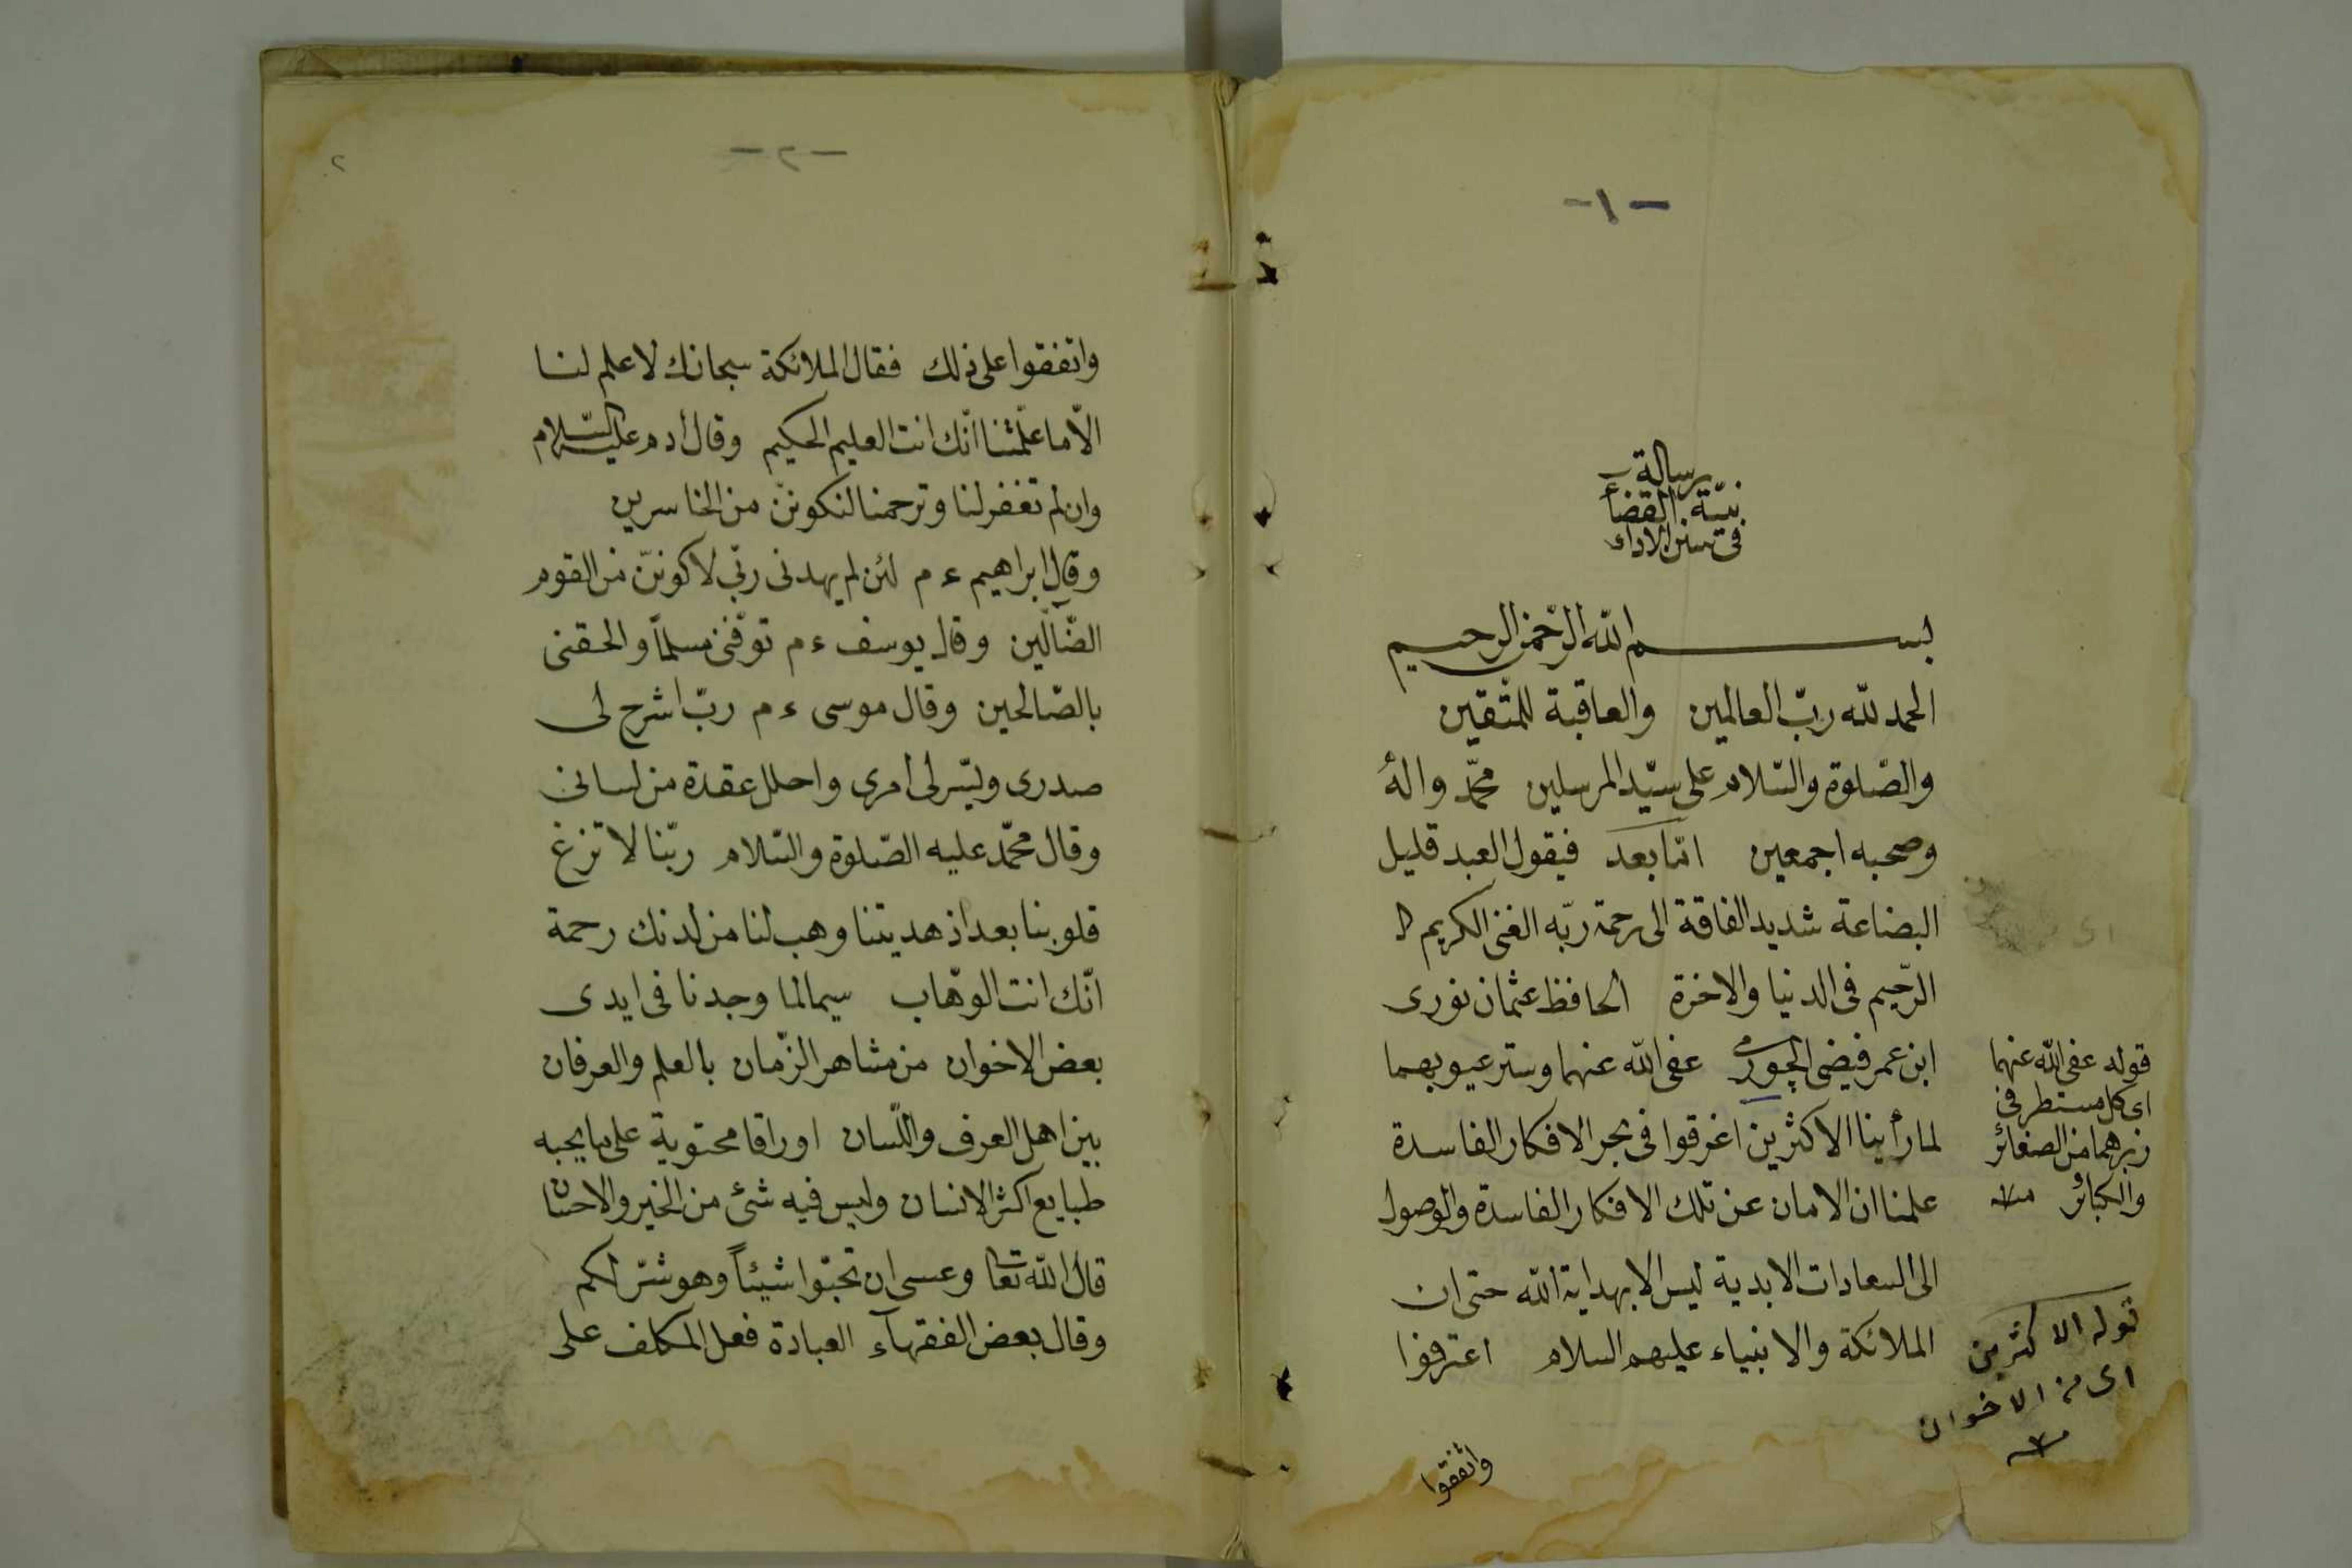 -١-
رسالة
نيّة القضاء
فى سنن الاداء
بسم الله الرّحمن الرحيم
الحمد لله ربّ العالمين والعاقبة للمتّقين
والصّلوة والسّلام على سيّد المرسلين محمّد واله
وصحبه اجمعين امّا بعد فيقول العبد قليل
البضاعة شديد الفاقة الى رحمة ربّه الغنى الكريم
الرّحيم فى الدنيا والاخرة الحافظ عثمان نورى
ابن عمر فيضى الچورمى عفى الله عنهما وستر عيوبهما
لما رأينا الاكثرين اغرقوا فى بحر الافكار الفاسدة
علمنا ان الامان عن تلك الافكار الفاسدة والوصول
الى السعادات الابدية ليس الا بهداية الله حتى ان
الملائكة والانبياء عليهم السلام اعترفوا
واتفقوا
قوله عفى الله عنهما
اى كل مستطر فى
زبرهما من الصغائر
والكبائر منه
قوله الاكثرين
اى من الاخوان
منه
-٢-
٢
واتفقوا على ذلك فقال الملائكة سبحانك لا علم لنا
الّا ما علّمتنا انّك انت العليم الحكيم وقال أدم عليه السّلام
وان لم تغفر لنا وترحمنا لنكوننّ من الخاسرين
وقال ابراهيم ءم لئن لم يهدنى ربّى لاكوننّ من القوم
الضّآلّين وقال يوسف ءم توفّنى مسلماً والحقنى
بالصّالحين وقال موسى ءم ربّ اشرح لى
صدرى ويسّر لى امرى واحلل عقدة من لسانى
وقال محمّد عليه الصّلوة والسّلام ربّنا لا تزغ
قلوبنا بعد اذ هديتنا وهب لنا من لدنك رحمة
انّك انت الوهّاب سيما لما وجدنا فى ايدى
بعض الاخوان من مشاهر الزّمان بالعلم والعرفان
بين اهل العرف واللّسان اوراقا محتوية على ما يحبه
طبايع اكثر الانسان وليس فيه شئ من الخير والاحسان
قال الله تعا وعسى ان تحبّوا شيئاً وهو شرّ لكم
وقال بعض الفقهآء العبادة فعل المكلف على